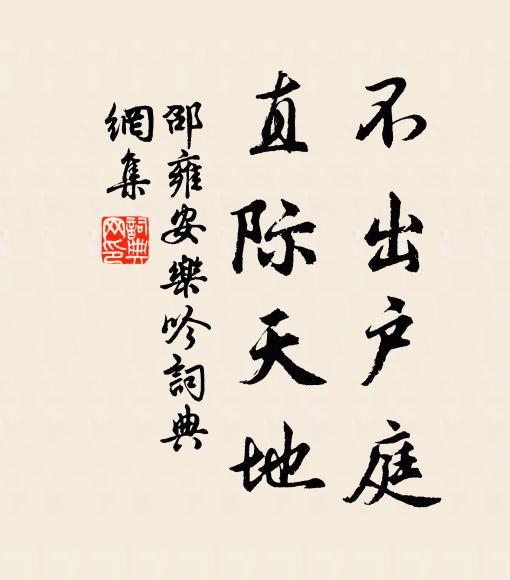 不出户庭
直际天地
邵雍安樂吟詞典
網集
詞典
网印